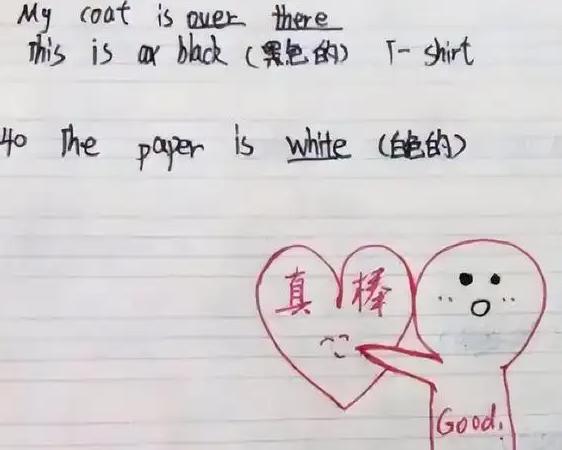 My coat is over there
This is a black (黑色的) T-shirt
40 The paper is white (白色的)
真棒
Good.